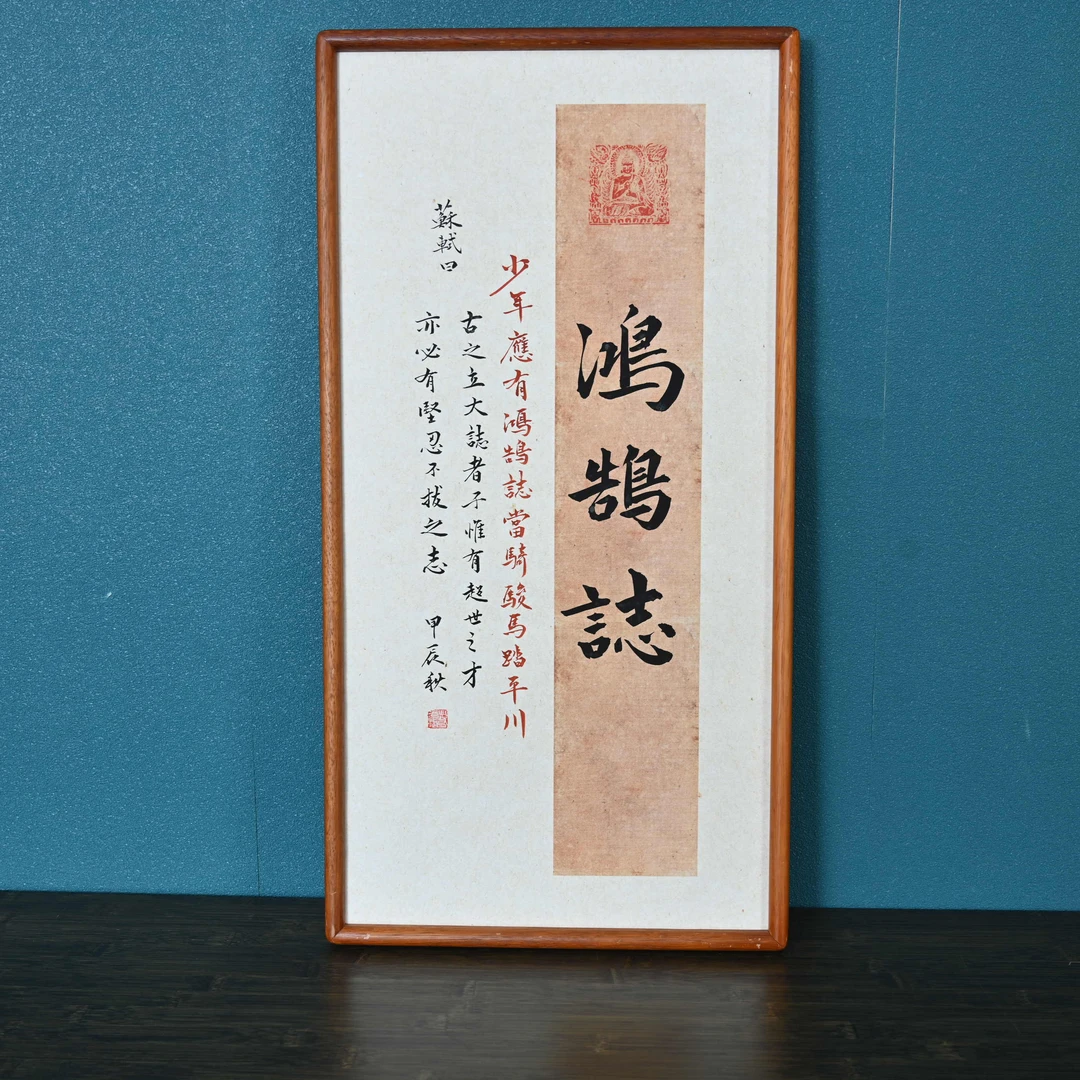 鴻鵠誌
少年應有鴻鵠誌當騎駿馬踏平川
蘇軾曰
古之立大誌者不惟有超世之才
亦必有堅忍不拔之志 甲辰秋